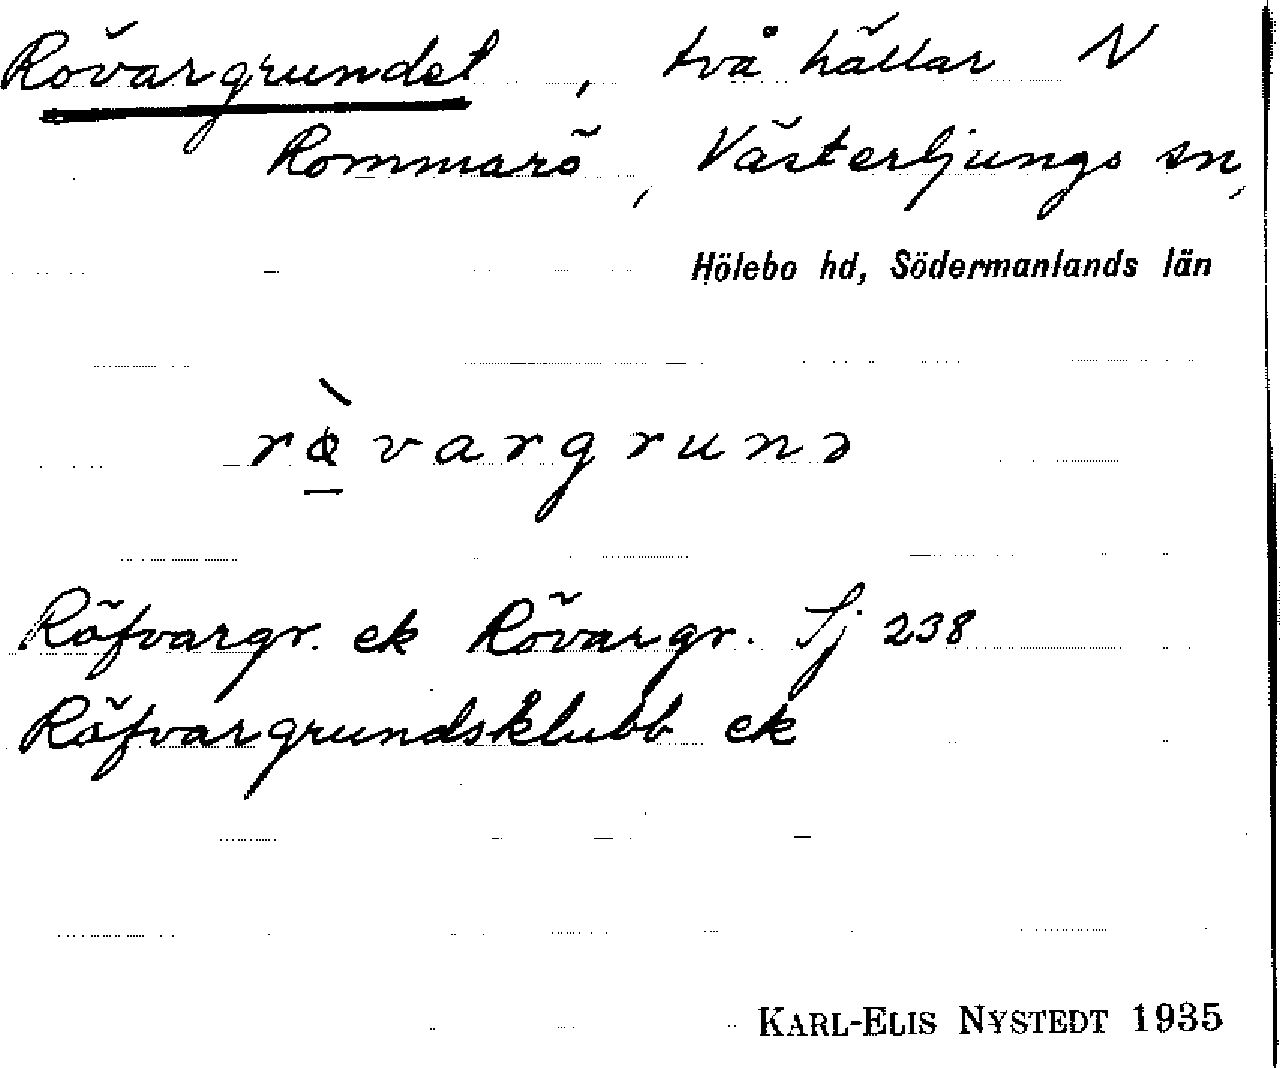 Rövargrundet, två hällar N
Rommarö, Västerljungs sn,
Hölebo hd, Södermanlands län
Röfvargr. ek Rövargr. Sj 238
Röfvargrundsklubb ek
KARL-ELIS NYSTEDT 1935